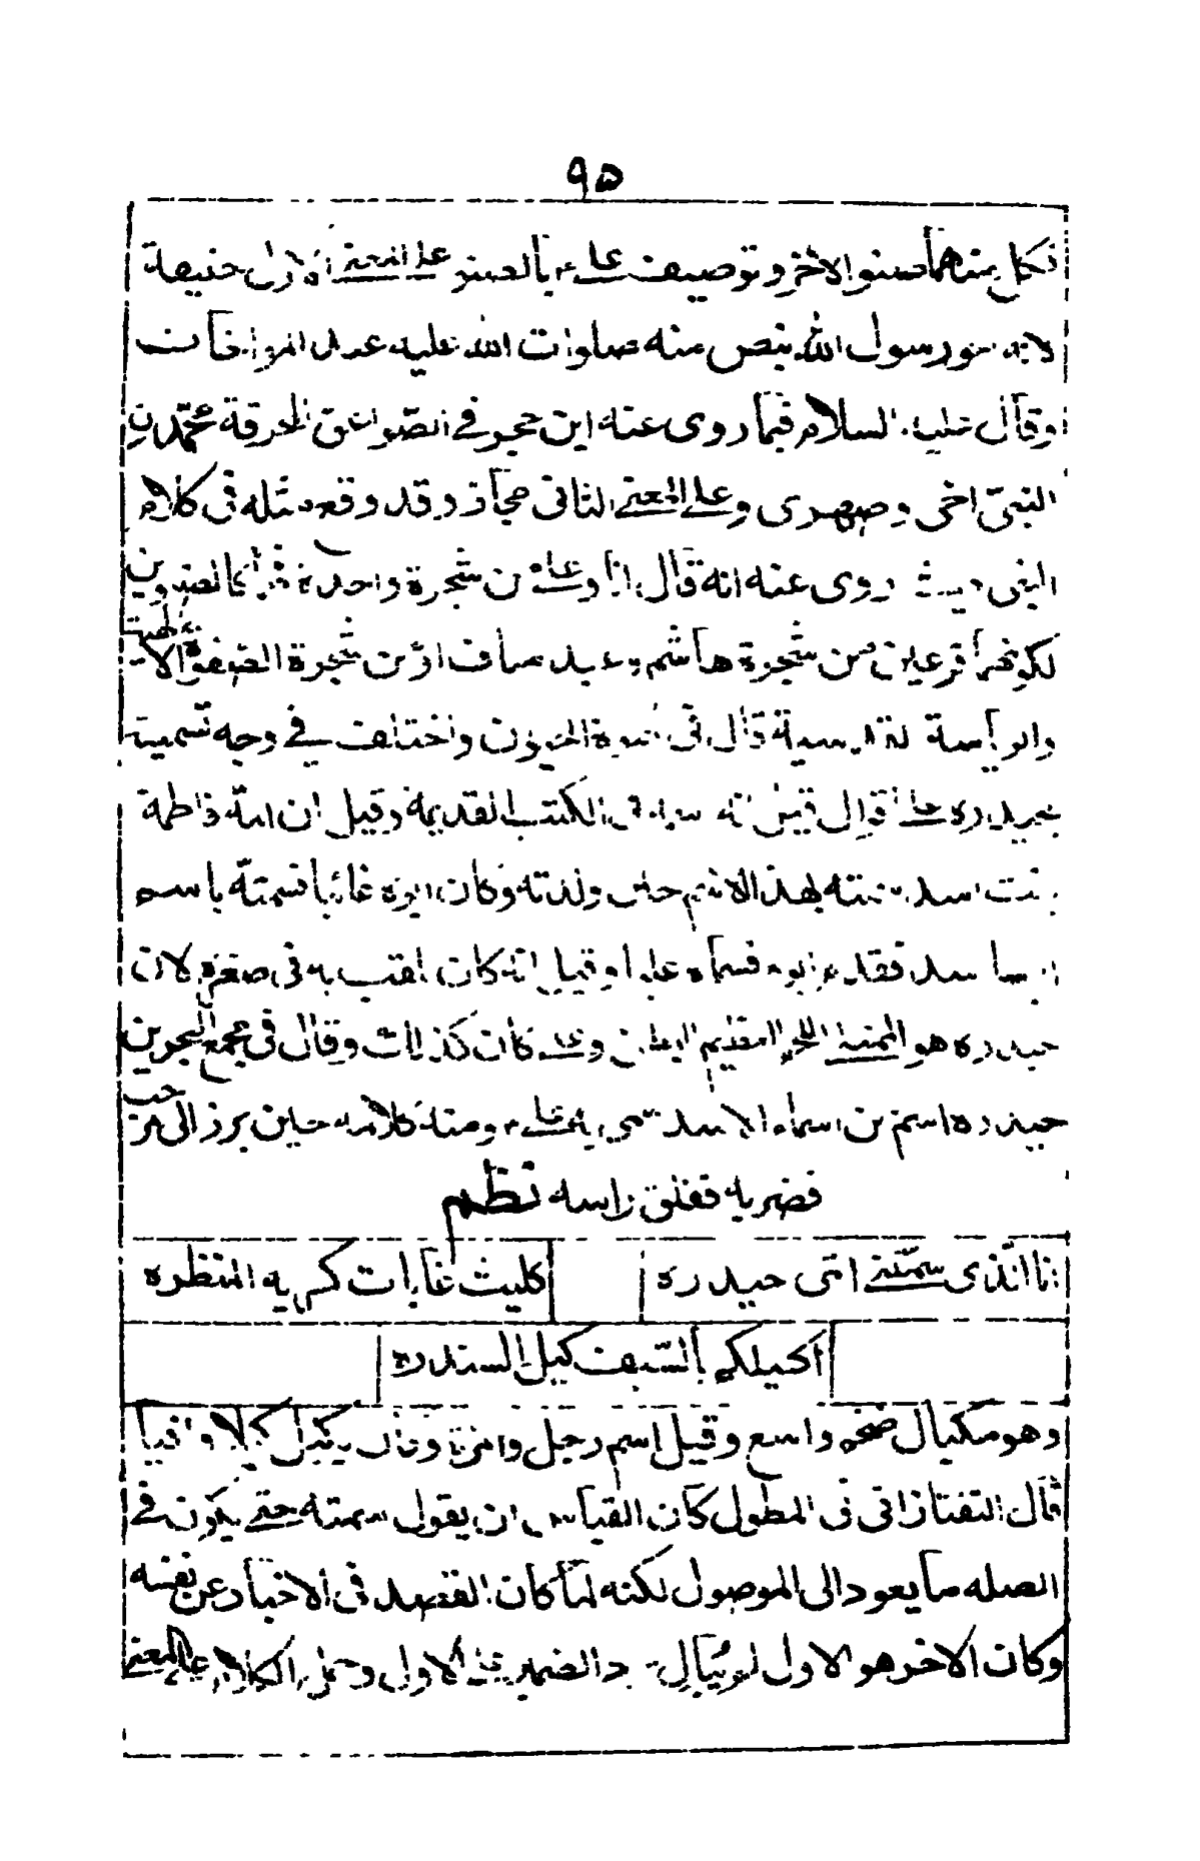 ٩٥
فكل منهما صنو الاخر وتوصيف على بالصنو على المعنى الاول حقيقة
لانه صنو رسول الله بنص منه صلوات الله عليه
وقال عليه السلام فيما روى عنه ابن حجر في الصواعق المحرقة محمدن
النبي اخي وصهري وعلى المعنى الثاني مجاز وقد وقع مثله في كلام
النبي حيث روى عنه انه قال انا وعلى من شجرة واحدة كالصنوين
لكونهما فرعين من شجرة هاشم وعبد مناف او من شجرة الصفوة
والرياسة القدسية قال في الحيوان واختلف في وجه تسمية
بحيدرة على اقوال فقيل انه الكتب القديمة وقيل ان امه فاطمة
بنت اسد سمته بهذا الاسم حين ولدته وكان ابوه غائبا فسمته باسم
اسد فقدم ابوه فسماه عليا وقيل انه كان لقب به في صغره لان
حيدره هو الممتلئ اللحم العظيم البطن وعلى كان كذلك وقال في مجمع البحرين
حيدره اسم من اسماء الاسد سمي به على ومنه كلامه حين برز الى مرحب
فضربه ففلق راسه نظم
انا الذى سمتنى امى حيدره كليث غابات كريه المنظره
اكيلكم بالسيف كيل السندره
وهو مكيال ضخم واسع وقيل اسم رجل وامرأة كان يكيل كيلا وافيا
قال التفتازاني في المطول كان القياس ان يقول سمته حتى يكون في
الصله ما يعود الى الموصول لكنه لما كان القصد في الاخبار عن نفسه
وكان الاخر هو الاول لم يبال برد الضمير على الاول وحمل الكلام على المعنى